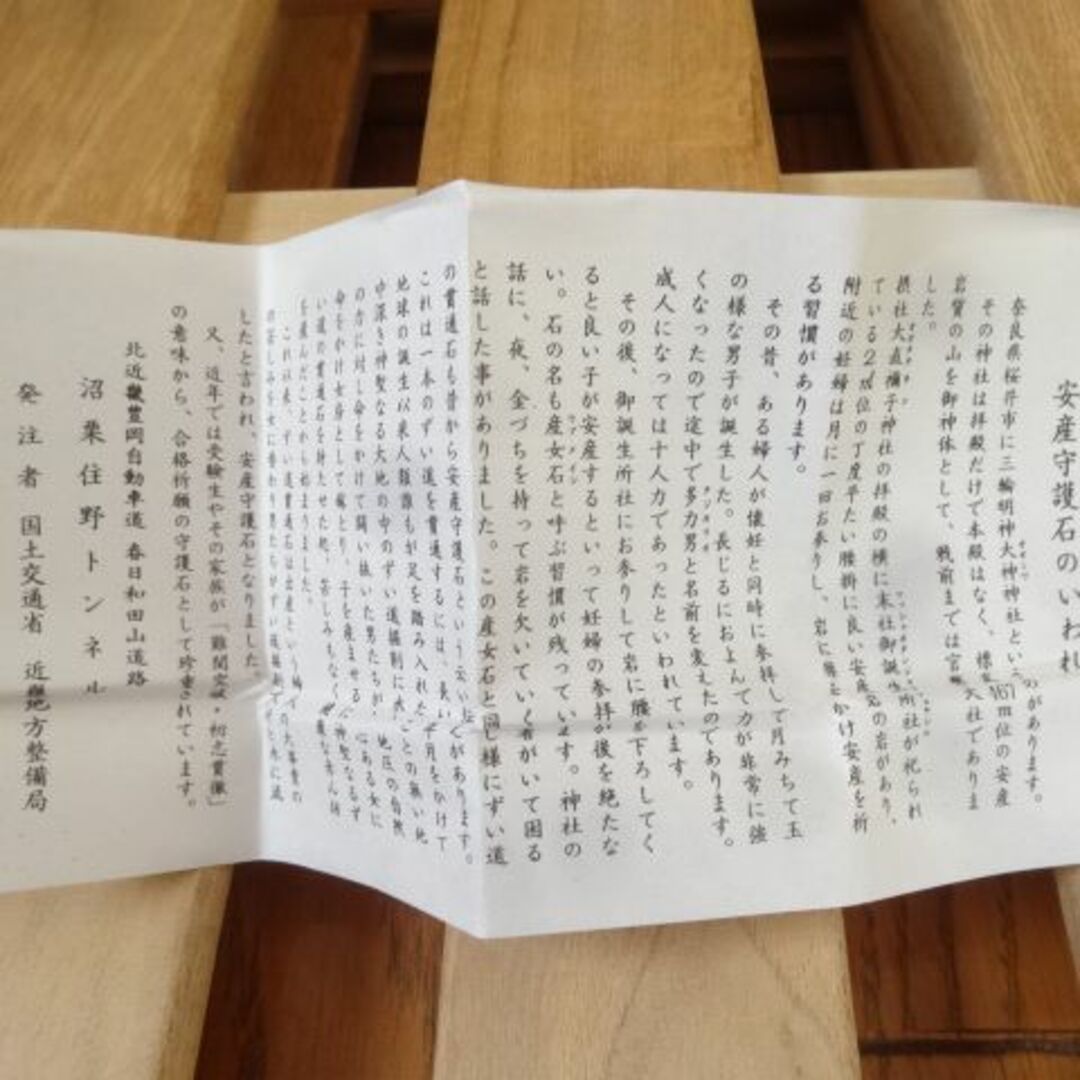 安産守護石のいわれ
奈良県桜井市に三輪明神大神神社という のがあります。
その神社は拝殿だけで本殿はなく、標高167m位の安産
岩質の山を御神体として、戦前までは官 大社でありま
した。
摂社大直禰子神社の拝殿の横に末社御誕生所社が祀られ
ている2㎡位の丁度平たい腰掛に良い安産 の岩があり、
附近の妊婦は月に一回お参りし、岩に をかけ安産を祈
る習慣があります。
その昔、ある婦人が懐妊と同時に参拝して月みちて玉
の様な男子が誕生した。長じるにおよんで力が非常に強
くなったので途中で多力男と名前を変えたのであります。
成人になっては十人力であったといわれています。
その後、御誕生所社にお参りして岩に腰を下ろしてく
ると良い子が安産するといって妊婦の参拝が後を絶たな
い。石の名も産女石と呼ぶ習慣が残っています。神社の
話に、夜、金づちを持って岩を欠いていく者がいて困る
と話した事がありました。この産女石と同じ様にずい道
の貫通石も昔から安産守護石という云い伝えがあります。
これは一本のずい道を貫通するには、長い年月をかけて
地球の誕生以来人類誰もが足を踏み入れたことの無い地
中深き神聖なる大地の中のずい道掘削に、大地圧の自然
の力に対し命をかけて闘い抜いた男たちが、心ある女に
命をかけ女身として嫁とり、子を産ませる 神聖なるず
い道の貫通石を持たせた処、苦しみもなく 産んだことから始まりました。
これ以来、ずい道貫通石は出産という
したと言われ、安産守護石となりました。
又、近年では受験生やその家族が「難関突破・初志貫徹」
の意味から、合格祈願の守護石として珍重されています。
北近畿豊岡自動車道 春日和田山道路
沼 栗住野トンネル
発注者 国土交通省 近畿地方整備局